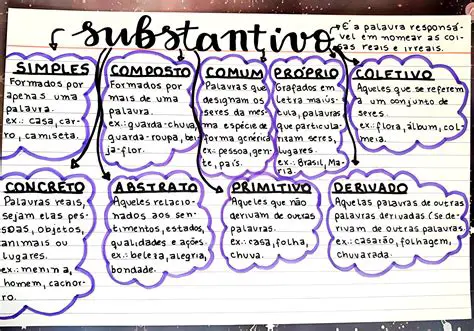 substantivo
É a palavra responsá
vel em nomear as coi
sas reais e irreais.
SIMPLES
Formados por
apenas uma
palavra.
ex.: casa, car-
ro, camiseta.
COMPOSTO
Formados por
mais de uma
palavra.
ex.: guarda-chuva,
guarda-roupa, bei
ja-flor.
COMUM
Palavras que
designam os
seres da mes-
ma espécie de
forma genérica
ex: pessoa, gen-
te, país.
PRÓPRIO
Grafados em
letra maiús-
tula, palavras
que particula-
rizam seres,
lugares.
ex.: Brasil, Ma-
ria.
COLETIVO
Aqueles que se referem
a um conjunto de
seres.
ex.: flora, álbum, col-
meia.
CONCRETO
Palavras reais,
sejam elas pes-
soas, objetos,
animais ou
lugares.
ex.: menina,
homem, cachor-
ro.
ABSTRATO
Aqueles relacio-
nados aos sen-
timentos, estados,
qualidades e ações.
ex.: beleza, alegria,
bondade.
PRIMITIVO
Aqueles que não
derivam de outras
palavras.
ex.: casa, folha,
chuva.
DERIVADO
Aquelas palavras de outras
palavras derivadas (se de-
rivam de outras palavras
ex.: casarão, folhagem,
chuvarada.